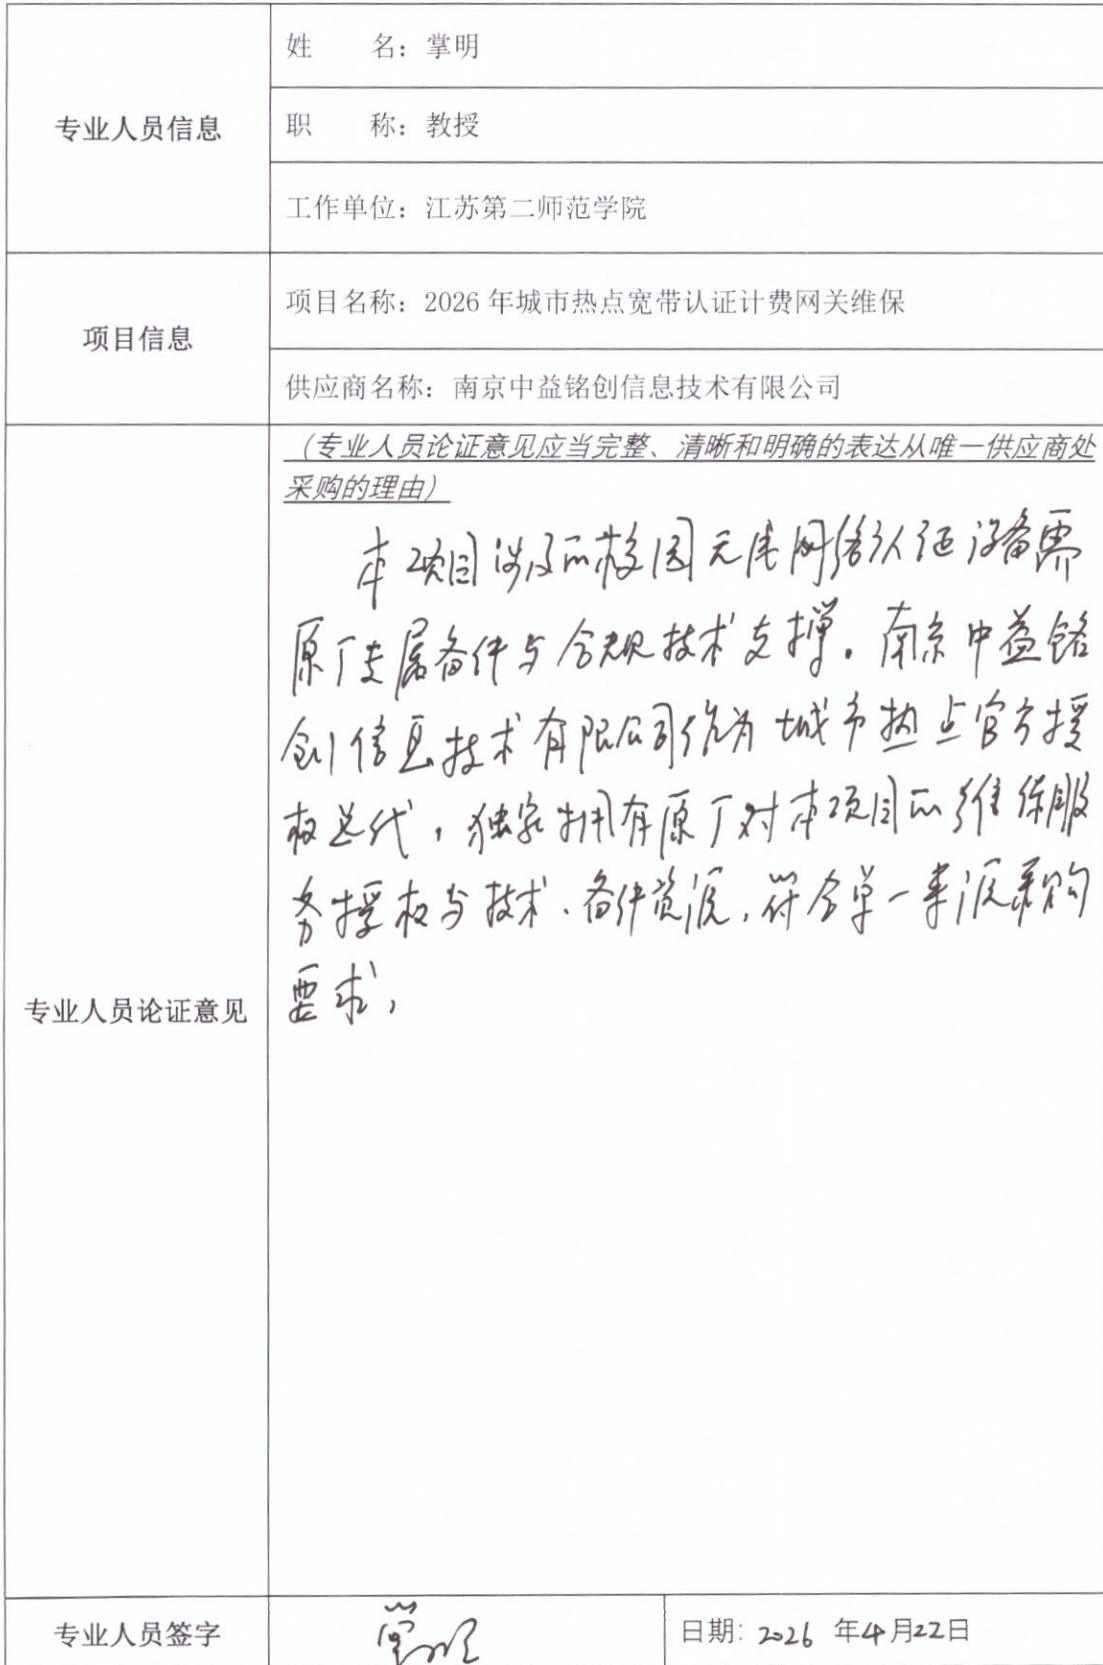 专业人员信息
姓 名：掌明
职 称：教授
工作单位：江苏第二师范学院
项目信息
项目名称：2026 年城市热点宽带认证计费网关维保
供应商名称：南京中益铭创信息技术有限公司
专业人员论证意见
（专业人员论证意见应当完整、清晰和明确的表达从唯一供应商处
采购的理由）
本项目涉及的校园无线网络认证设备需
原厂专属备件与合规技术支撑。南京中益铭
创信息技术有限公司作为城市热点官方授
权总代，独家拥有原厂对本项目的维保服
务授权与技术、备件资源，符合单一来源采购
要求，
专业人员签字
掌明
日期：2026 年4月22日